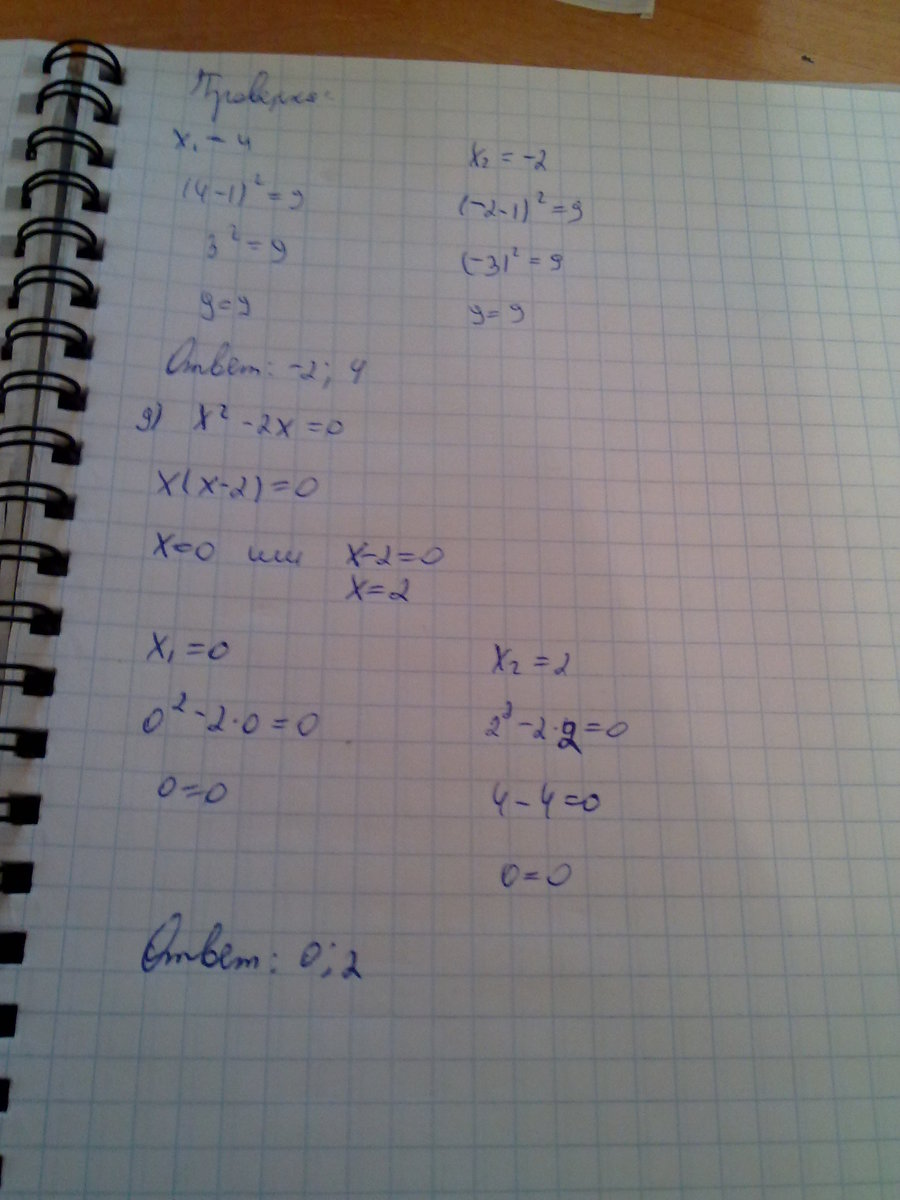 Проверка:
x₁ = 4
(4-1)² = 9
3² = 9
9 = 9
x₂ = -2
(-2-1)² = 9
(-3)² = 9
9 = 9
Ответ: -2; 4
д) x² - 2x = 0
x(x-2) = 0
x=0 или x-2=0
x=2
x₁ = 0
0² - 2·0 = 0
0=0
x₂ = 2
2² - 2·2 = 0
4-4=0
0=0
Ответ: 0; 2